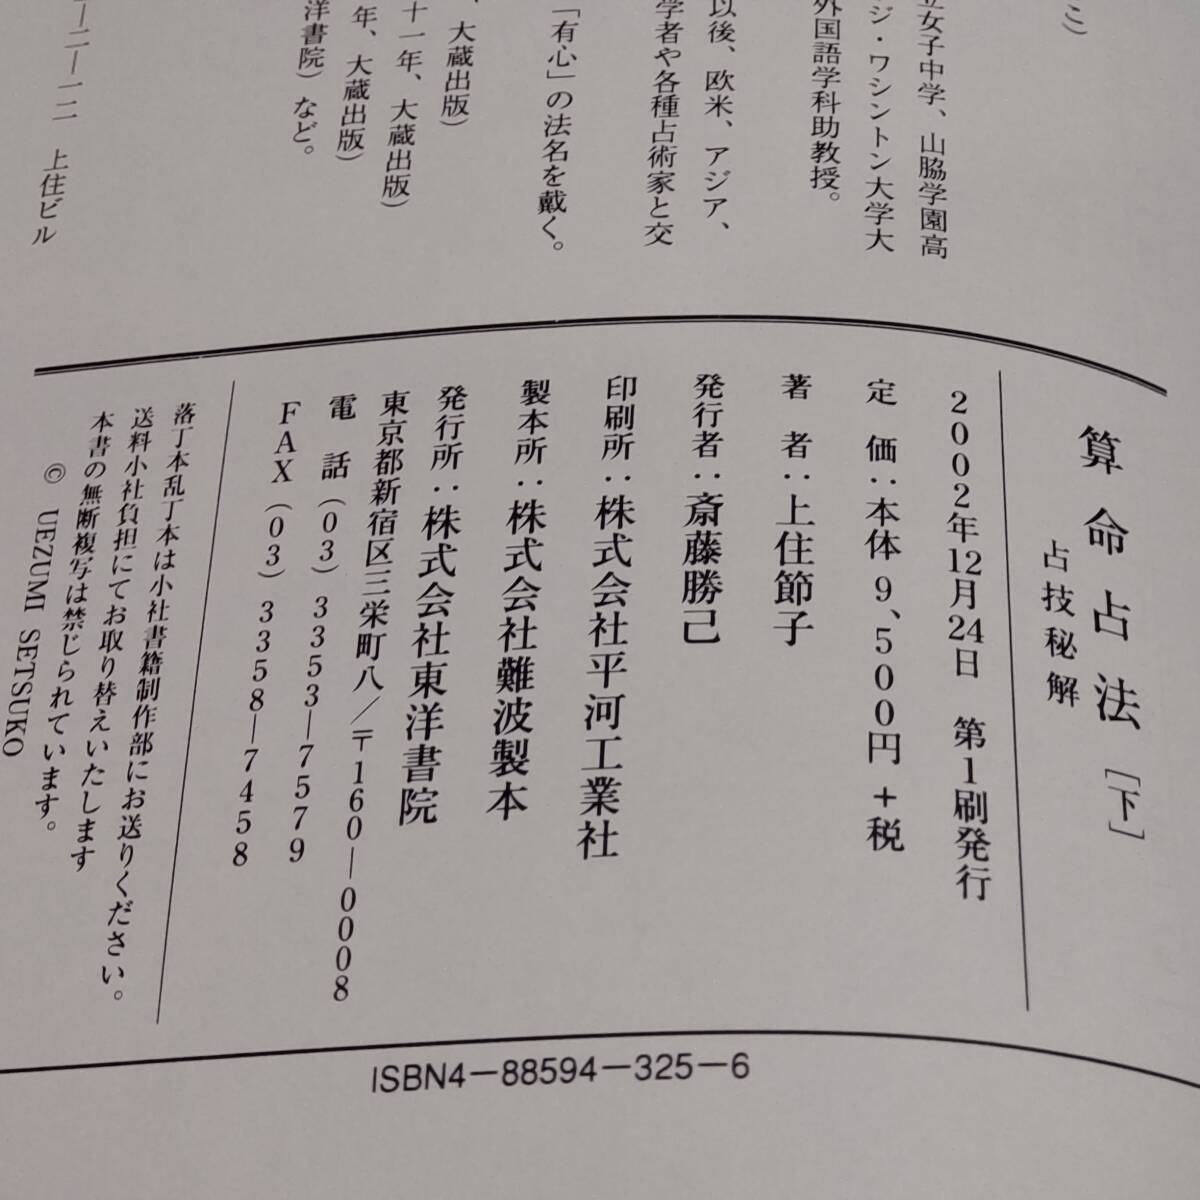 こ）
立女子中学、山脇学園高
ジ・ワシントン大学大
外国語学科助教授。
以後、欧米、アジア、
学者や各種占術家と交
「有心」の法名を戴く。
、大蔵出版）
十一年、大蔵出版）
年、大蔵出版）
洋書院）など。
—二—一二　上住ビル
算命占法［下］
占技秘解
2002年12月24日　第1刷発行
定　価：本体9、500円＋税
著　者：上住節子
発行者：斎藤勝己
印刷所：株式会社平河工業社
製本所：株式会社難波製本
発行所：株式会社東洋書院
東京都新宿区三栄町八／〒160—0008
電　話（03）3353—7579
FAX（03）3358—7458
落丁本乱丁本は小社書籍制作部にお送りください。
送料小社負担にてお取り替えいたします
本書の無断複写は禁じられています。
© UEZUMI SETSUKO
ISBN4-88594-325-6